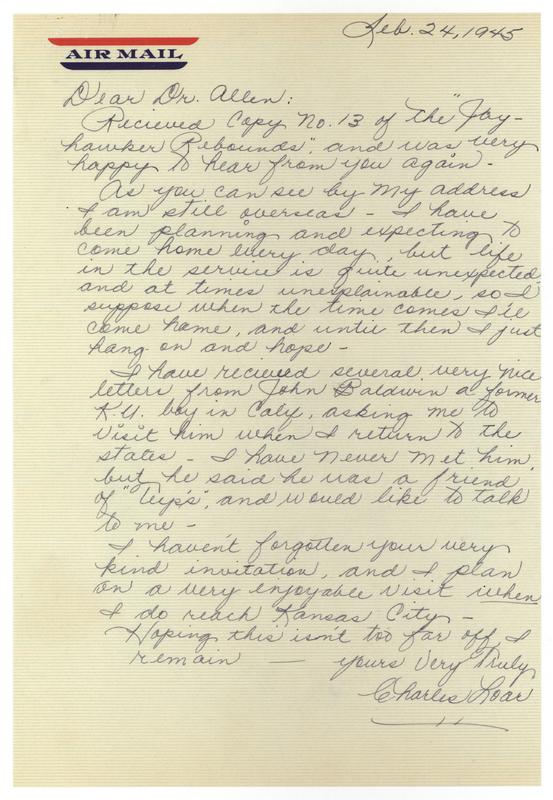 Feb. 24, 1945
AIR MAIL
Dear Dr. Allen:
Recieved Copy No. 13 of the "Jay-
hawker Rebounds", and was very
happy to hear from you again -
As you can see by my address
I am still overseas - I have
been planning and expecting to
come home every day, but life
in the service is quite unexpected
and at times unexplainable, so I
suppose when the time comes I'll
come home, and until then I just
hang on and hope -
I have recieved several very nice
letters from John Baldwin a former
K.U. boy in Caly, asking me to
visit him when I return to the
states - I have never met him,
but he said he was a friend
of "Tup's", and would like to talk
to me -
I haven't forgotten your very
kind invitation, and I plan
on a very enjoyable visit when
I do reach Kansas City -
Hoping this isn't too far off, I
remain — yours Very Truly
Charles Loar